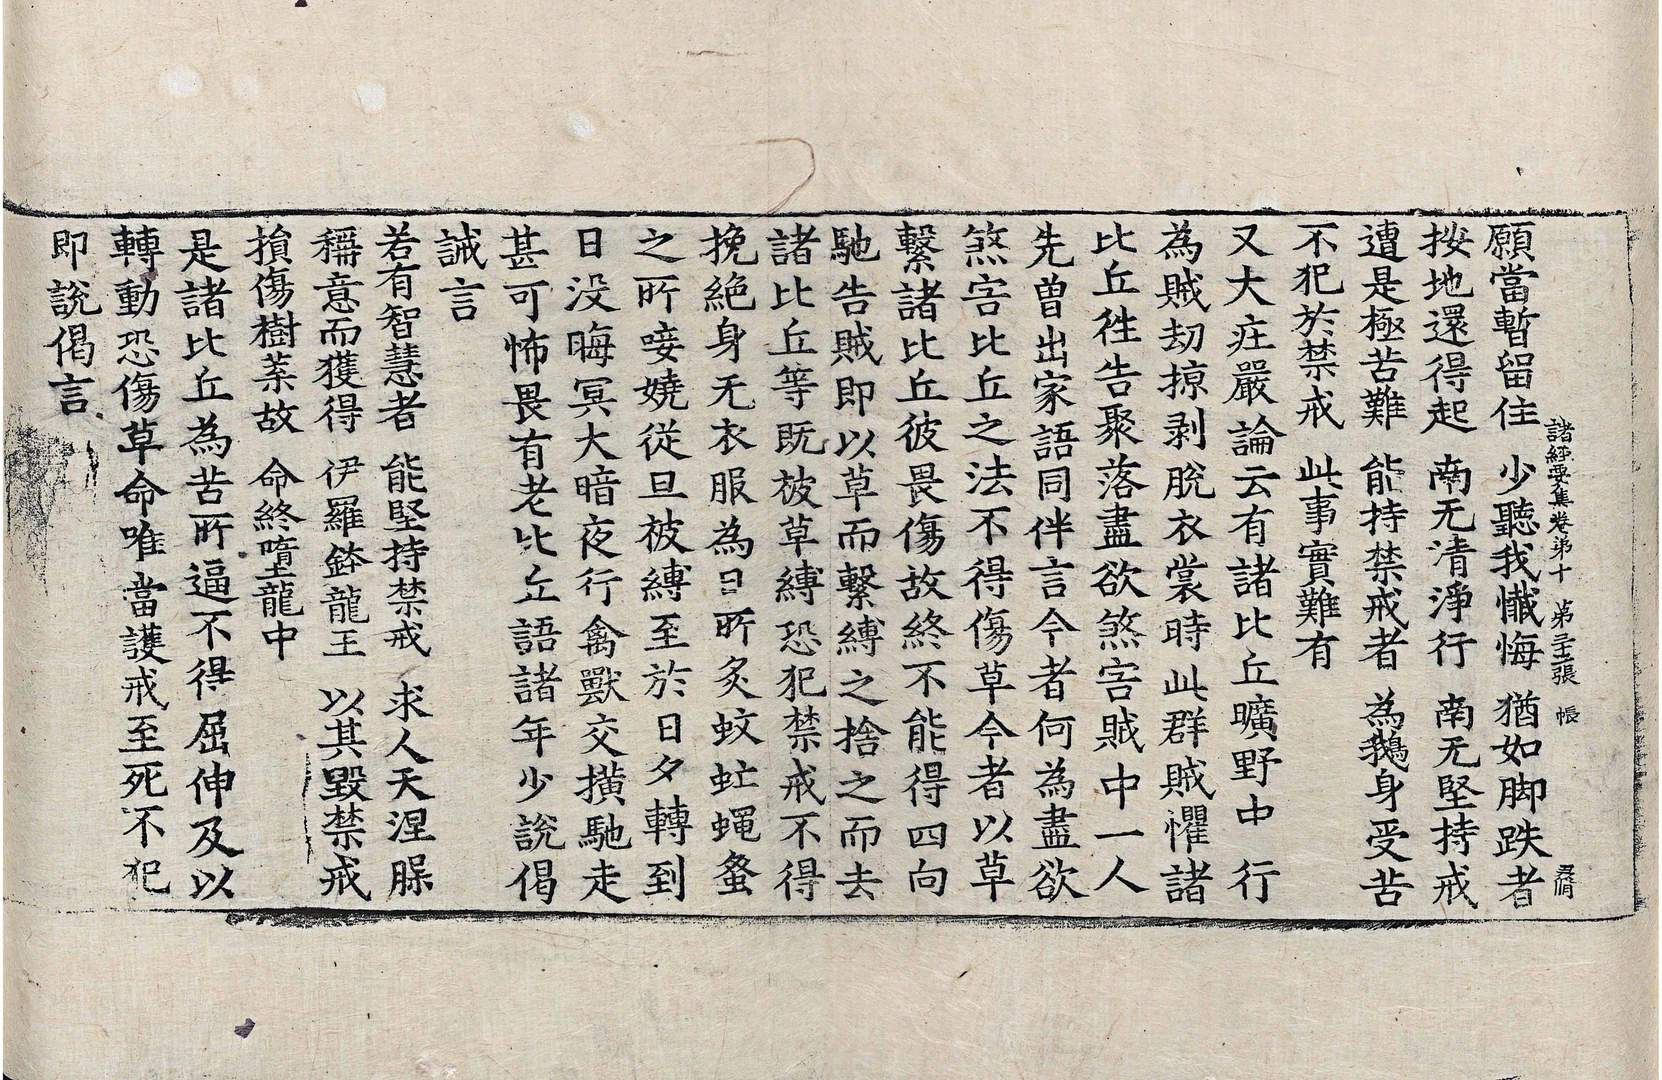 諸經要集卷苐十 第三張 帳
願當暫留住 少聽我懺悔 猶如脚跌者
按地還得起 南无清淨行 南无堅持戒
遭是極苦難 能持禁戒者 為鵝身受苦
不犯於禁戒 此事實難有
又大庄嚴論云有諸比丘曠野中行
為賊劫掠剥脫衣裳時此群賊懼諸
比丘徃告聚落盡欲煞害賊中一人
先曽出家語同伴言今者何為盡欲
煞害比丘之法不得傷草今者以草
繫諸比丘彼畏傷故終不能得四向
馳告賊即以草而繫縛之捨之而去
諸比丘等既被草縛恐犯禁戒不得
挽絶身无衣服為日所炙蚊虻蝿螫
之所唼嬈從旦被縛至於日夕轉到
日没晦冥大暗夜行禽獸交撗馳走
甚可怖畏有老比丘語諸年少說偈
誡言
若有智慧者 能堅持禁戒 求人天涅槃
稱意而獲得 伊羅鉢龍王 以其毀禁戒
損傷樹葉故 命終墮龍中
是諸比丘為苦所逼不得屈伸及以
轉動恐傷草命唯當護戒至死不犯
即說偈言